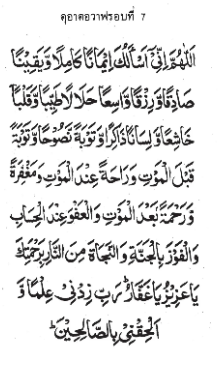 ดุอาตอวาฟรอบที่ 7
اَللّٰهُمَّ اِنِّيْ اَسْأَلُكَ اِيْمَانًا كَامِلًا وَّيَقِيْنًا
صَادِقًا وَّرِزْقًا وَّاسِعًا حَلَالًا طَيِّبًا وَّقَلْبًا
خَاشِعًا وَّلِسَانًا ذَاكِرًا وَّتَوْبَةً نَّصُوْحًا وَّتَوْبَةً
قَبْلَ الْمَوْتِ وَرَاحَةً عِنْدَ الْمَوْتِ وَمَغْفِرَةً
وَّرَحْمَةً بَعْدَ الْمَوْتِ وَالْعَفْوَ عِنْدَ الْحِسَابِ
وَالْفَوْزَ بِالْجَنَّةِ وَالنَّجَاةَ مِنَ النَّارِ بِرَحْمَتِكَ
يَا عَزِيْزُ يَا غَفَّارُ رَبِّ زِدْنِيْ عِلْمًا وَّ
اَلْحِقْنِيْ بِالصَّالِحِيْنَ